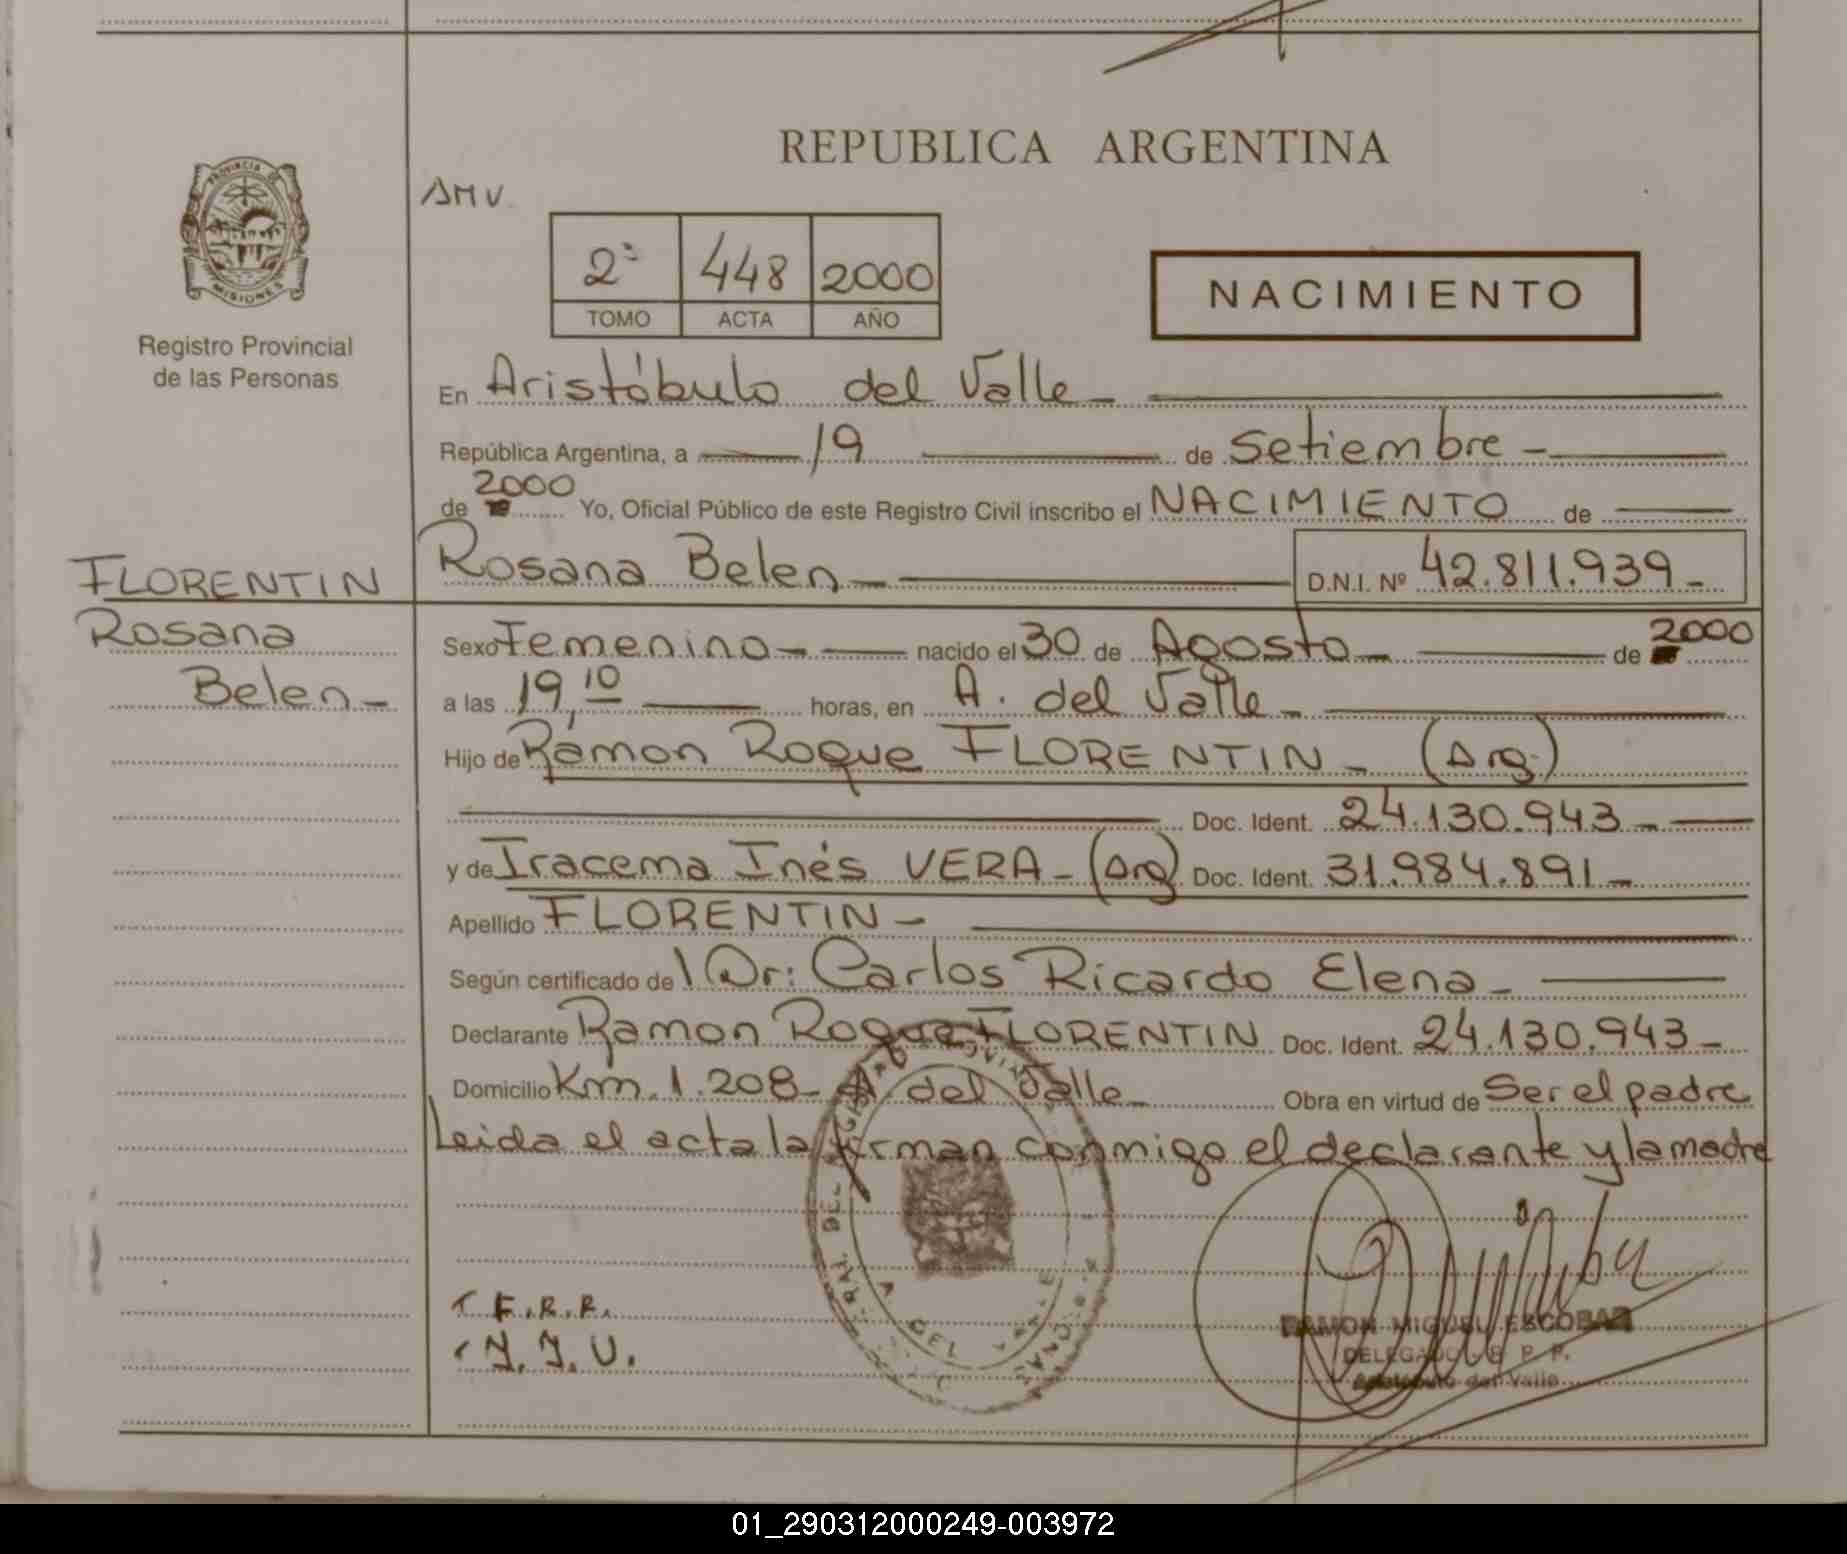 REPUBLICA ARGENTINA
PROVINCIA DE
MISIONES
Registro Provincial
de las Personas
AMV.
2º 448 2000
TOMO ACTA AÑO
NACIMIENTO
En Aristóbulo del Valle
República Argentina, a 19 de Setiembre
de 2000 Yo, Oficial Público de este Registro Civil inscribo el NACIMIENTO de
FLORENTIN
Rosana
Belen
Rosana Belen D.N.I. Nº 42.811.939
Sexo Femenino nacido el 30 de Agosto de 2000
a las 19,10 horas, en A. del Valle
Hijo de Ramon Roque FLORENTIN (Arg)
Doc. Ident. 24.130.943
y de Iracema Inés VERA (Arg) Doc. Ident. 31.984.891
Apellido FLORENTIN
Según certificado del Dr: Carlos Ricardo Elena
Declarante Ramon Roque FLORENTIN Doc. Ident. 24.130.943
Domicilio Km. 1.208 A. del Valle Obra en virtud de Ser el padre
Leida el acta la firman conmigo el declarante y la madre
F.R.R.
I.I.V.
RAMON MIGUEL ESCOBAR
DELEGADO R. P. P.
Aristobulo del Valle
01_290312000249-003972